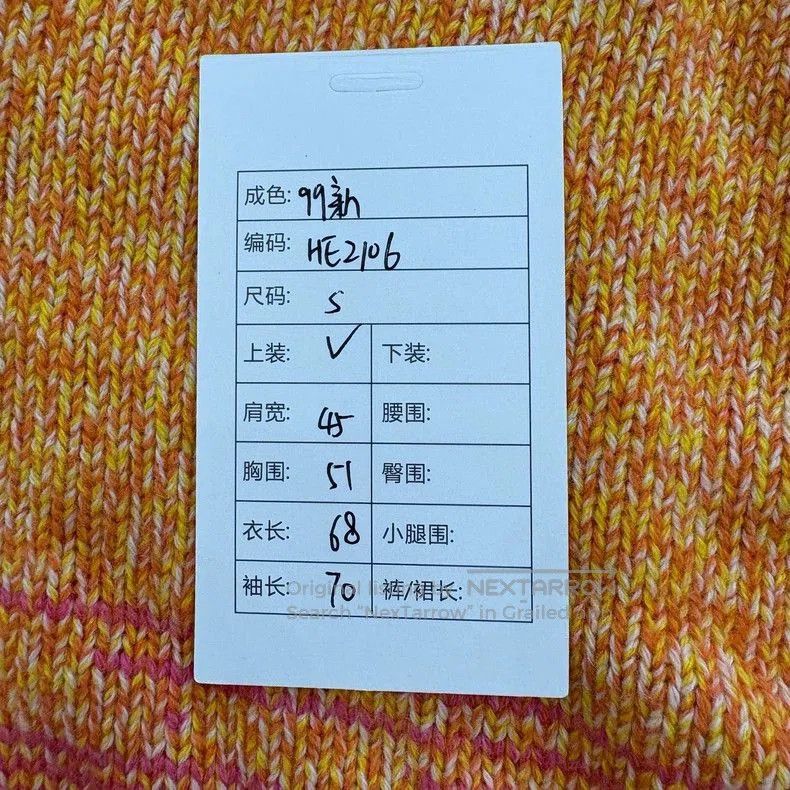 成色: 99新
编码: HE2106
尺码: S
上装: ✓ 下装:
肩宽: 45 腰围:
胸围: 51 臀围:
衣长: 68 小腿围:
袖长: 70 裤/裙长:
NEXTARROW
Search "NexTarrow" in Grailed